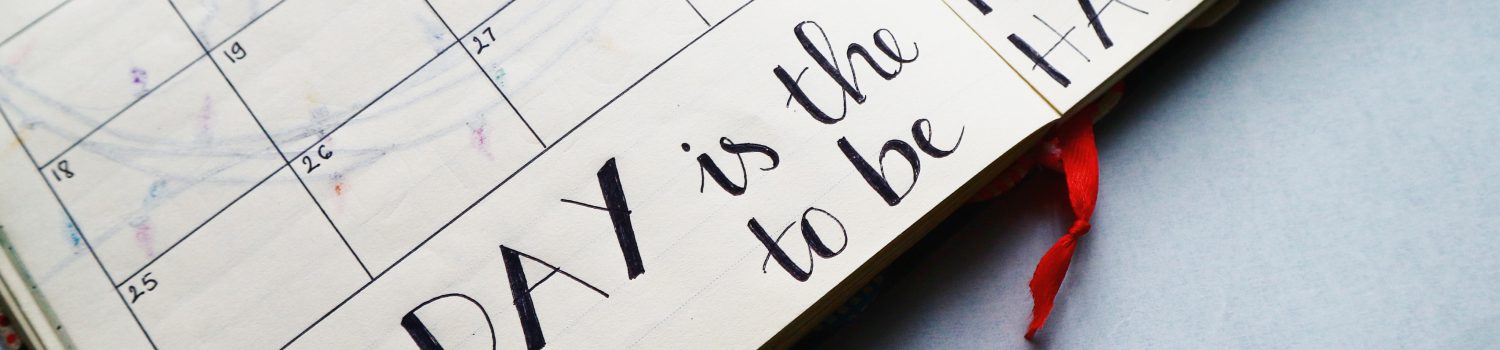 19
27
18
26
25
DAY is the
to be
HA